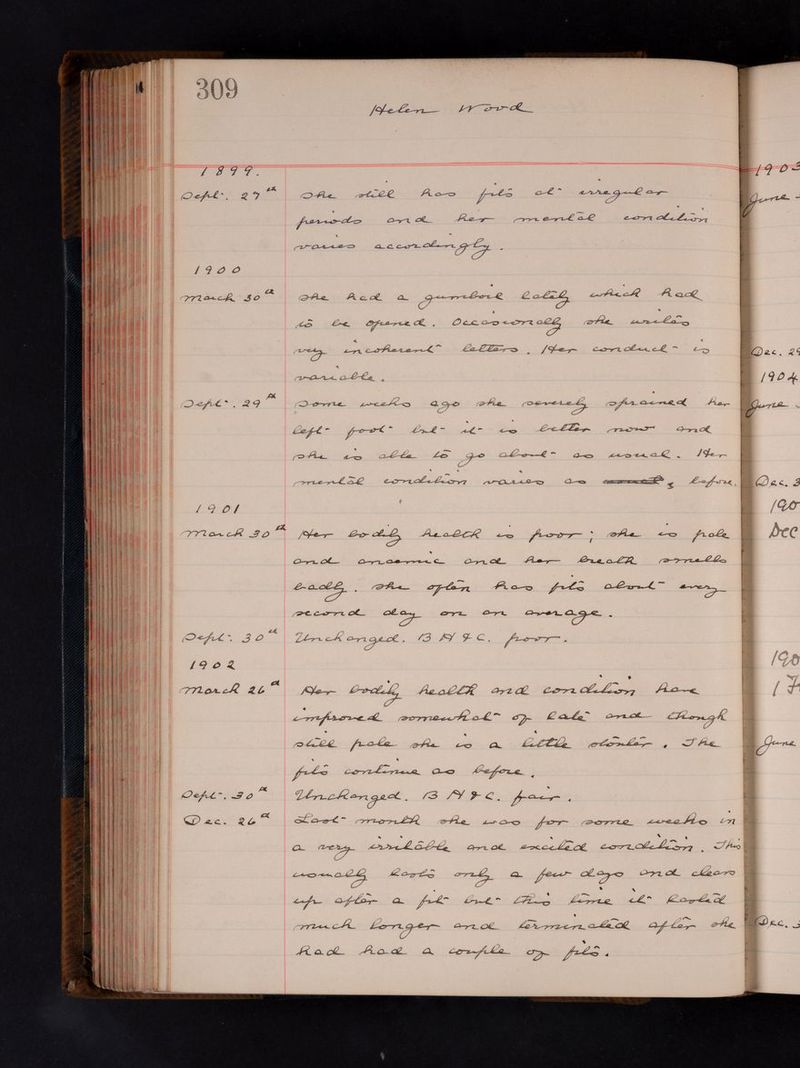 309
Helen Wood
1899.
Sept. 27th She still has fits at irregular
periods and her mental condition
varies accordingly.
1900
March 30th She had a gumboil lately which had
to be opened. Occasionally she writes
very incoherent letters. Her conduct is
variable.
Sept. 29th Some weeks ago she severely sprained her
left foot but it is better now and
she is able to go about as usual. Her
mental condition varies as before.
1901
March 30th Her bodily health is poor; she is pale
and anaemic and her breath smells
badly. She often has fits about every
second day on an average.
Sept. 30th Unchanged. B H & C. poor.
1902
March 26th Her bodily health and condition have
improved somewhat of late and though
still pale she is a little stouter. The
fits continue as before.
Sept. 30th Unchanged. B H & C. fair.
Dec. 26th Last month she was for some weeks in
a very irritable and excited condition. This
usually lasts only a few days and clears
up after a fit but this time it lasted
much longer and terminated after she
had had a couple of fits.
1903
June
Dec. 29
1904
June
Dec. 3
190
Dec
190
June
Dec.